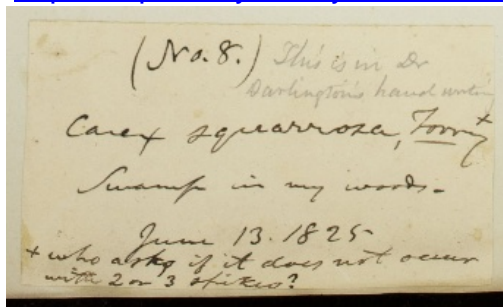 (No. 8.) This is in Dr
Darlington's hand writing
Carex squarrosa, Torrey +
Swamp in my woods.
June 13. 1825
+ who asks if it does not occur
with 2 or 3 spikes?